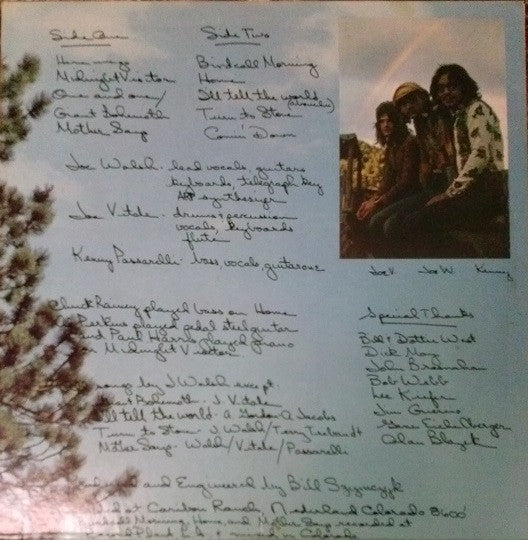 Side One
Homing
Midnight Visitor
One and one
Giant Bohemoth
Mother Says
Side Two
Birdcall Morning
Home
I'll tell the world
(about you)
Turn to Stone
Comin' Down
Joe Walsh - lead vocals, guitars
keyboards, telegraph key
ARP synthesizer
Joe Vitale - drums + percussion
vocals, keyboards
flute
Kenny Passarelli - bass, vocals, guitarone
Joe V Joe W. Kenny
Chuck Rainey played bass on Home
Al Perkins played pedal steel guitar
and Paul Harris played piano
on Midnight Visitor
songs by J Walsh except
Giant Bohemoth - J. Vitale
I'll tell the world - A. Gordon A Jacobs
Turn to Stone - J. Walsh/Terry Trebandt
Mother Says - Walsh/Vitale/Passarelli
Produced and Engineered by Bill Szymczyk
at Caribou Ranch, Nederland Colorado 8600'
Birdcall Morning, Home, and Mother Says recorded at
Record Plant L.A. + mixed in Colorado
Special Thanks
Bill + Dottie West
Dick
John
Bob Webb
Lee Kiefer
Jim Guercio
Gene
Alan Blazek